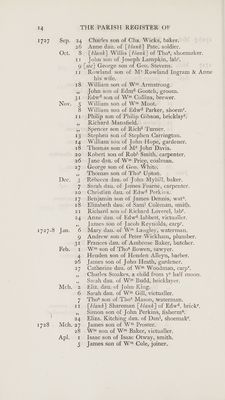 14 THE PARISH REGISTER OF
1727 Sep. 24 Charles son of Cha. Wicks, baker.
26 Anne dau. of [blank] Pate, soldier.
Oct. 8 [blank] Willis [blank] of Thos, shoemaker.
11 John son of Joseph Lampkin, labr.
9 [sic] George son of Geo. Stevens.
11 Rowland son of Mr Rowland Ingram & Anne
his wife.
18 William son of Wm Armstrong.
„ John son of Edwd Gooteh, grootn.
31 Edwd son of Wm Collins, brewer.
Nov. 5 William son of Wm Moot.
8 William son of Edwd Parker, shoemr.
11 Philip son of Philip Gibson, bricklayr.
„ Richard Mansfield.
„ Spencer son of Richd Turner.
13 Stephen son of Stephen Carrington.
14 William son of John Hope, gardener.
18 Thomas son of Mr John Davis.
20 Robert son of Robt Smith, carpenter.
26 Jane dau. of Wm Price, coalman.
27 George son of Geo. White.
„ Thomas son of Thos Upton.
Dec. 3 Rebecca dau. of John Myhill, baker.
7 Sarah dau. of James Fourni, carpenter.
10 Christian dau. of Edwd Perkins.
17 Benjamin son of James Dennis, watr.
18 Elizabeth dau. of Saml Coleman, smith.
21 Richard son of Richard Laverd, labr.
24 Anne dau. of Edwd Labbert, victualler.
„ James son of Jacob Reynolds, carpr.
1727-8 Jan. 6 Mary dau. of Wm Langley, waterman.
9 Andrew son of Peter Wickham, plumber.
31 Frances dau. of Ambrose Baker, butcher.
Feb. 2 Wm son of Thos Bowen, sawyer.
4 Henden son of Henden Alleyn, barber.
26 James son of John Heath, gardener.
27 Catherine dau. of Wm Woodman, carpr.
„ Charles Stoakes, a child from ye half moon.
„ Sarah dau. of Wm Budd, bricklayer.
Mch. 2 Eliz. dau. of John King.
6 Sarah dau. of Wm Gill, victualler.
7 Thos son of Thos Mason, waterman.
11 [blank] Sharman [blank] of Edwd, brickr.
„ Simon son of John Perkins, fisherm.
24 Eliza. Kitching dau. of Danl, shoemakr.
1728 Mch. 27 James son of Wm Proster.
28 Wm son of Wm Baker, victualler.
Apl. 1 Isaac son of Isaac Otway, smith.
5 James son of Wm Cole, joiner.